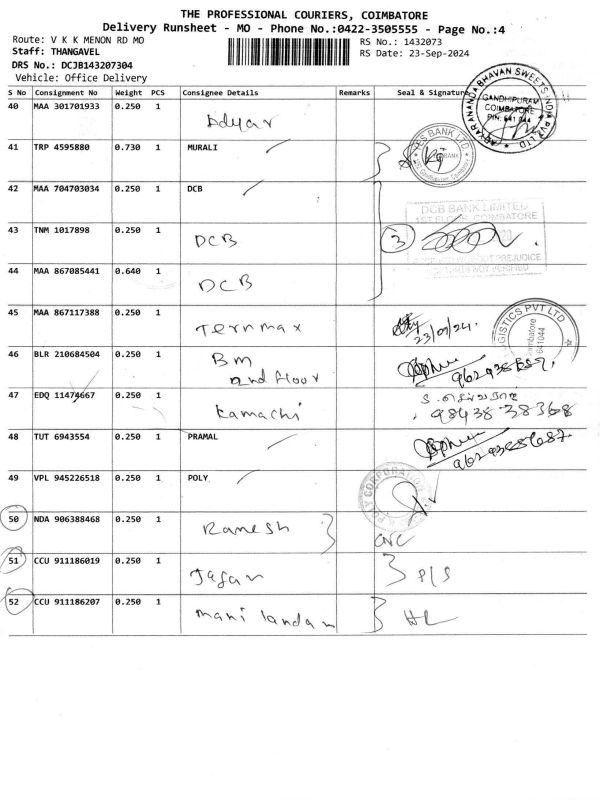 THE PROFESSIONAL COURIERS, COIMBATORE
Delivery Runsheet - MO - Phone No.:0422-3505555 - Page No.:4
Route: V K K MENON RD MO
RS No.: 1432073
Staff: THANGAVEL
RS Date: 23-Sep-2024
DRS No.: DCJB143207304
Vehicle: Office Delivery
S No Consignment No Weight PCS Consignee Details Remarks Seal & Signature
ADYAR ANANDA BHAVAN SWEETS INDIA PVT LTD
GANDHIPURAM
COIMBATORE
PIN: 641 044
40 MAA 301701933 0.250 1 Adyar
41 TRP 4595880 0.730 1 MURALI
BANK LTD
BANK
42 MAA 704703034 0.250 1 DCB
DCB BANK LIMITED
1ST FLOOR, COIMBATORE
43 TNM 1017898 0.250 1 DCB 3
PREJUDICE
NOT VERIFIED
44 MAA 867085441 0.640 1 DCB
45 MAA 867117388 0.250 1 Ternmax 23/09/24.
LOGISTICS PVT LTD
Coimbatore
641044
46 BLR 210684504 0.250 1 BM
2nd floor
47 EDQ 11474667 0.250 1 Kamachi
98438 38368
48 TUT 6943554 0.250 1 PRAMAL
49 VPL 945226518 0.250 1 POLY
CORPORATION
50 NDA 906388468 0.250 1 Ramesh
51 CCU 911186019 0.250 1 Jagan P/S
52 CCU 911186207 0.250 1 mani landan HL